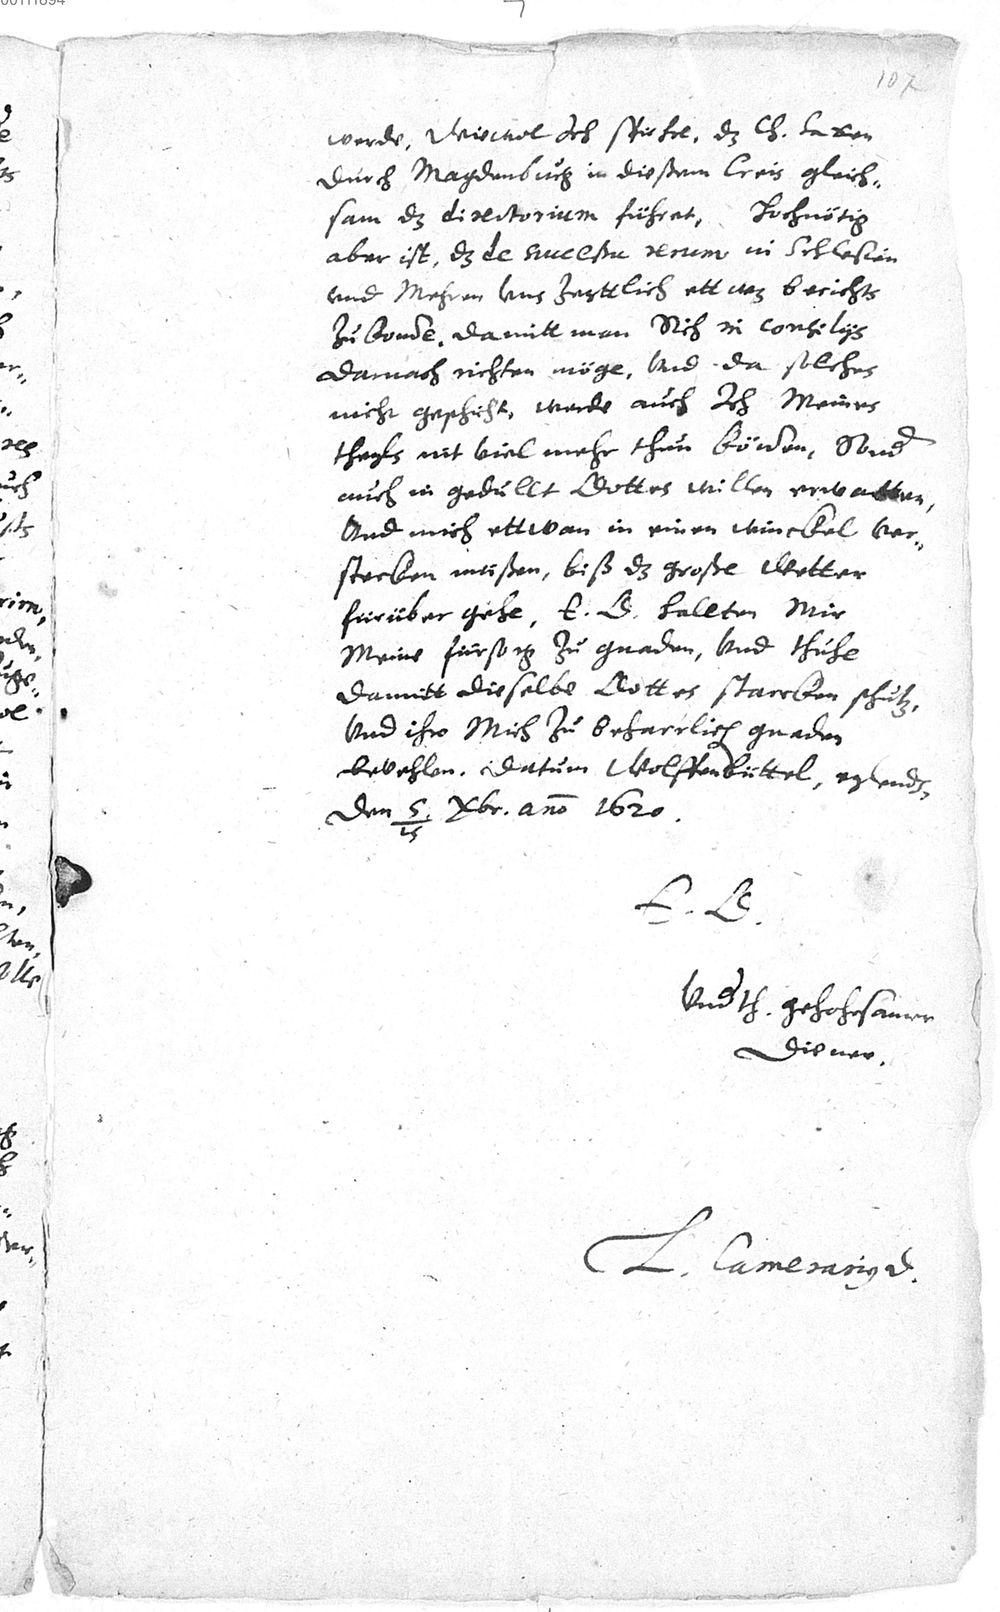 107
werde, Wiewol Ich spühre, dz Ch. Saxen
durch Magdenburg in dießem Creis gleich„
sam dz directorium führet, Hochnötig
aber ist, dz de successu rerum in Schlesien
und Mehren uns Zeyttlich ettwz berichts
Zu kome, damitt man Sich in consilijs
darnach richten möge, Und da solches
nicht geschicht, werde auch Ich Meines
theyls nit viel mehr thun könen, Sond
auch in gedullt Gottes willen erwartten,
Und mich ettwan in einen winckel ver„
stecken müßen, biß dz große Wetter
fürüber gehe, E. G. hallten Mir
Meine fürsorg Zu gnaden, Und thuhe
damitt dieselbe Gottes starcken schutz,
Und ihro Mich Zu beharrlich gnaden
bevehlen. Datum Wolffenbüttel, eylends,
den 5./15 Xbr. ano 1620.
E. G.
Undth. gehohrsamer
Diener.
L. Camerarius d.